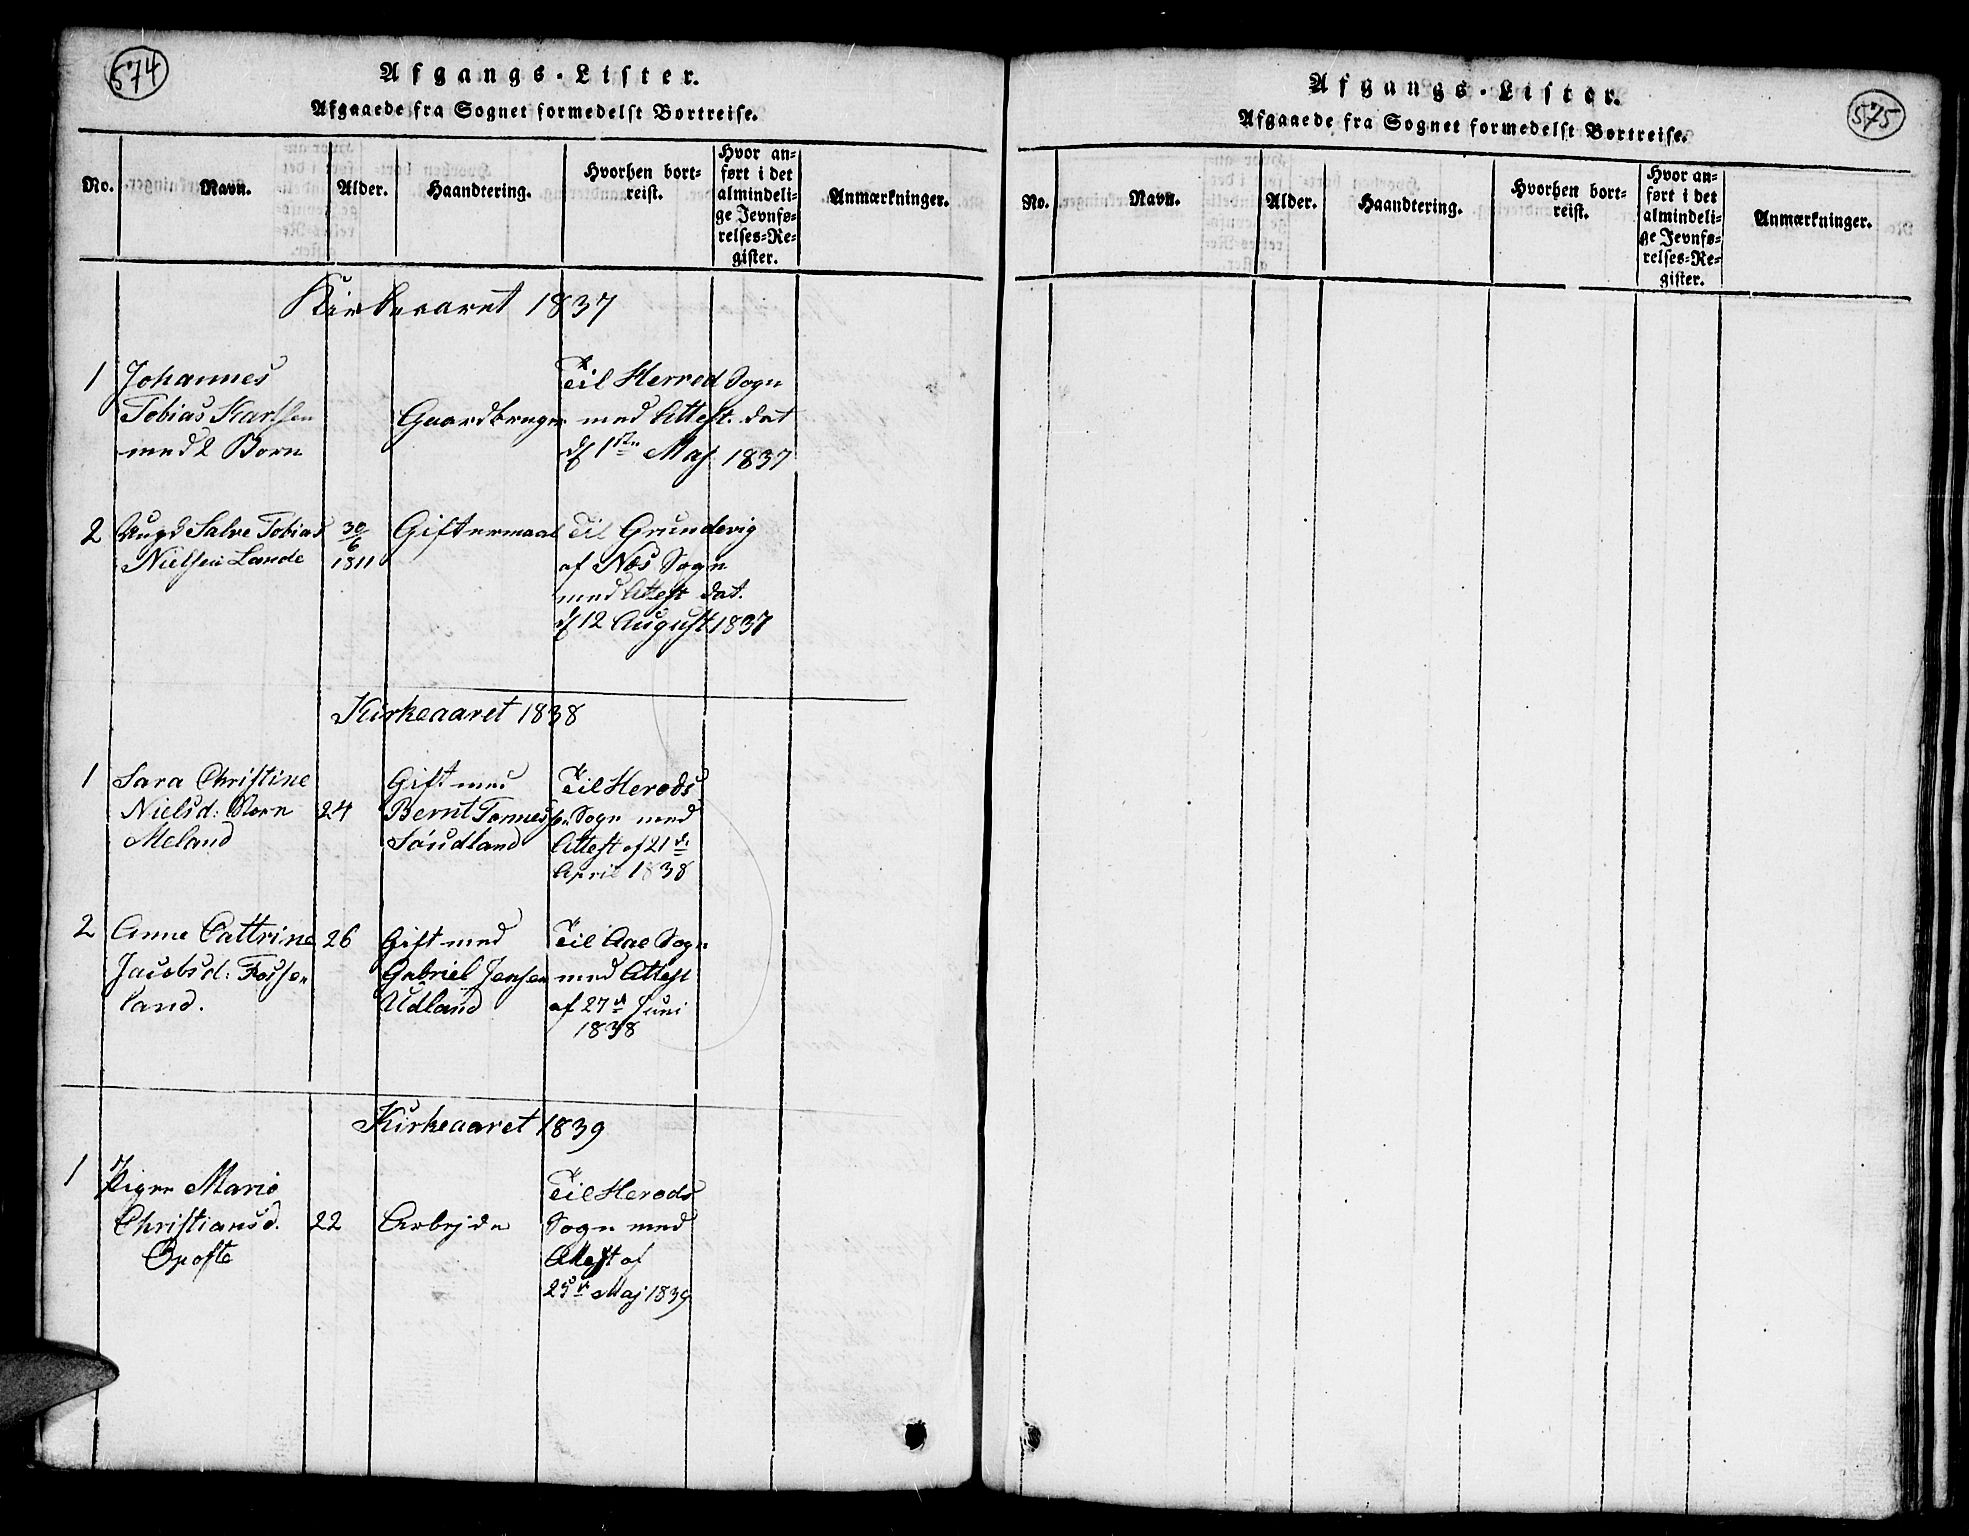 574
Afgangs-Lister.
Afgaaede fra Sognet formedelst Bortreise.
No.
Navn.
Alder.
Haandtering.
Hvorhen bort-
reist.
Hvor an-
ført i det
almindeli-
ge Jevnfø-
relses-Re-
gister.
Anmærkninger.
Kirkeaaret 1837
1
Johannes
Tobias Karlsen
med 2 Børn
Gaardbruger
Til Herred Sogn
med Attest. dat
d/ 1ste Maj 1837
2
Ungk Salve Tobias
Nielsen Lande
30/6
1811
Giftermaal
Til Grundevig
af Næs Sogn
med Attest dat.
d/ 12 August 1837
Kirkeaaret 1838
1
Sara Christine
Nielsd: Norn
Meland
24
Gift med
Bernt Tønnessen
Søudland
Til Herods
Sogn med
Attest af 21de
April 1838
2
Anne Cattrine
Jacobsd: Fosse
land.
26
Gift med
Gabriel Jensen
Udland
Til Aae Sogn
med Attest
af 27de Juni
1838
Kirkeaaret 1839
1
Pigen Marie
Christiansd.
Opofte
22
Arbejde
Til Herods
Sogn med
Attest af
25de Maj 1839
Afgangs-Lister.
Afgaaede fra Sognet formedelst Bortreise.
575
No.
Navn.
Alder.
Haandtering.
Hvorhen bort-
reist.
Hvor an-
ført i det
almindeli-
ge Jevnfø-
relses-Re-
gister.
Anmærkninger.